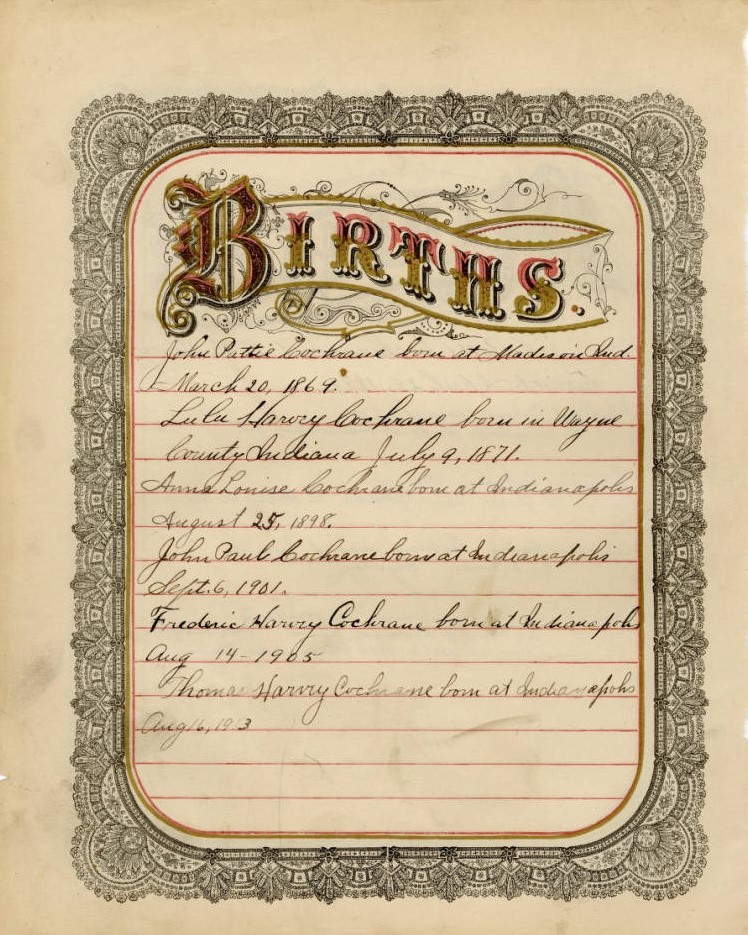 BIRTHS.
John Pattie Cochrane born at Madison Ind.
March 20, 1869.
Lulu Harvey Cochrane born in Wayne
County Indiana July 9, 1871.
Anna Louise Cochrane born at Indianapolis
August 25, 1898.
John Paul Cochrane born at Indianapolis
Sept. 6, 1901.
Frederic Harvey Cochrane born at Indianapolis
Aug 14-1905
Thomas Harvey Cochrane born at Indianapolis
Aug 16,